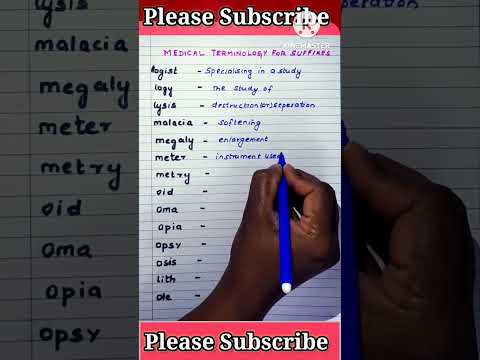 lysis
malacia
megaly
meter
metry
oid
oma
opia
opsy
Please Subscribe
KINEMASTER
MEDICAL TERMINOLOGY FOR SUFFIXES
logist - Specialising in a study
logy - The study of
lysis - destruction(or)seperation
malacia - Softening
megaly - enlargement
meter - instrument used
metry -
oid -
oma -
opia -
opsy -
osis -
lith -
ole -
Please Subscribe